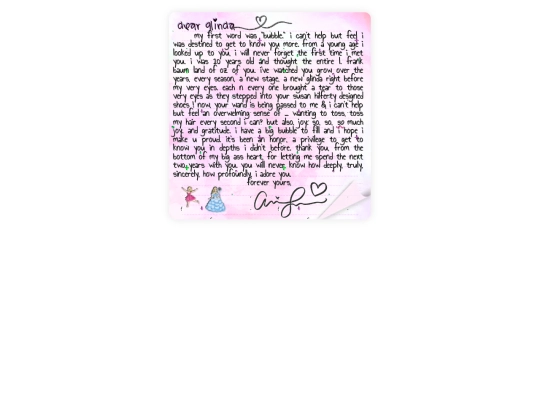 dear glinda
my first word was "bubble." i can't help but feel i
was destined to get to know you more. from a young age i
looked up to you. i will never forget the first time i met
you. i was 10 years old and thought the entire l. frank
baum land of oz of you. i've watched you grow over the
years, every season, a new stage, a new glinda right before
my very eyes. each n every one brought a tear to those
very eyes as they stepped into your susan hilferty designed
shoes. now, your wand is being passed to me & i can't help
but feel an overwhelming sense of ... wanting to toss, toss
my hair every second i can? but also, joy. so, so, so much
joy. and gratitude. i have a big bubble to fill and i hope i
make u proud. it's been an honor, a privilege to get to
know you in depths i didn't before. thank you, from the
bottom of my big ass heart, for letting me spend the next
two years with you. you will never know how deeply, truly,
sincerely, how profoundly, i adore you.
forever yours,